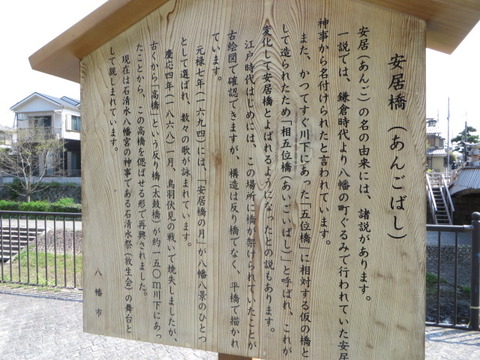 安居橋（あんごばし）
安居（あんご）の名の由来には、諸説があります。
一説では、鎌倉時代より八幡の町ぐるみで行われていた安居
神事から名付けられたと言われています。
また、かつてすぐ川下にあった「五位橋」に相対する仮の橋と
して造られたため「相五位橋（あいごいばし）」と呼ばれ、これが
変化して安居橋とよばれるようになったとの説もあります。
江戸時代はじめには、この場所に橋が架けられていたことが
古絵図で確認できますが、構造は反り橋でなく、平橋で描かれ
ています。
元禄七年（一六九四）には、「安居橋の月」が八幡八景のひとつ
として選ばれ、数々の歌が詠まれています。
慶応四年（一八六八）一月、鳥羽伏見の戦いで焼失しましたが、
古くから「高橋」という反り橋（太鼓橋）が約一五〇ｍ川下にあっ
たことから、この高橋を偲ばせる形で再興されました。
現在は石清水八幡宮の神事である石清水祭（放生会）の舞台と
して親しまれています。
八幡市